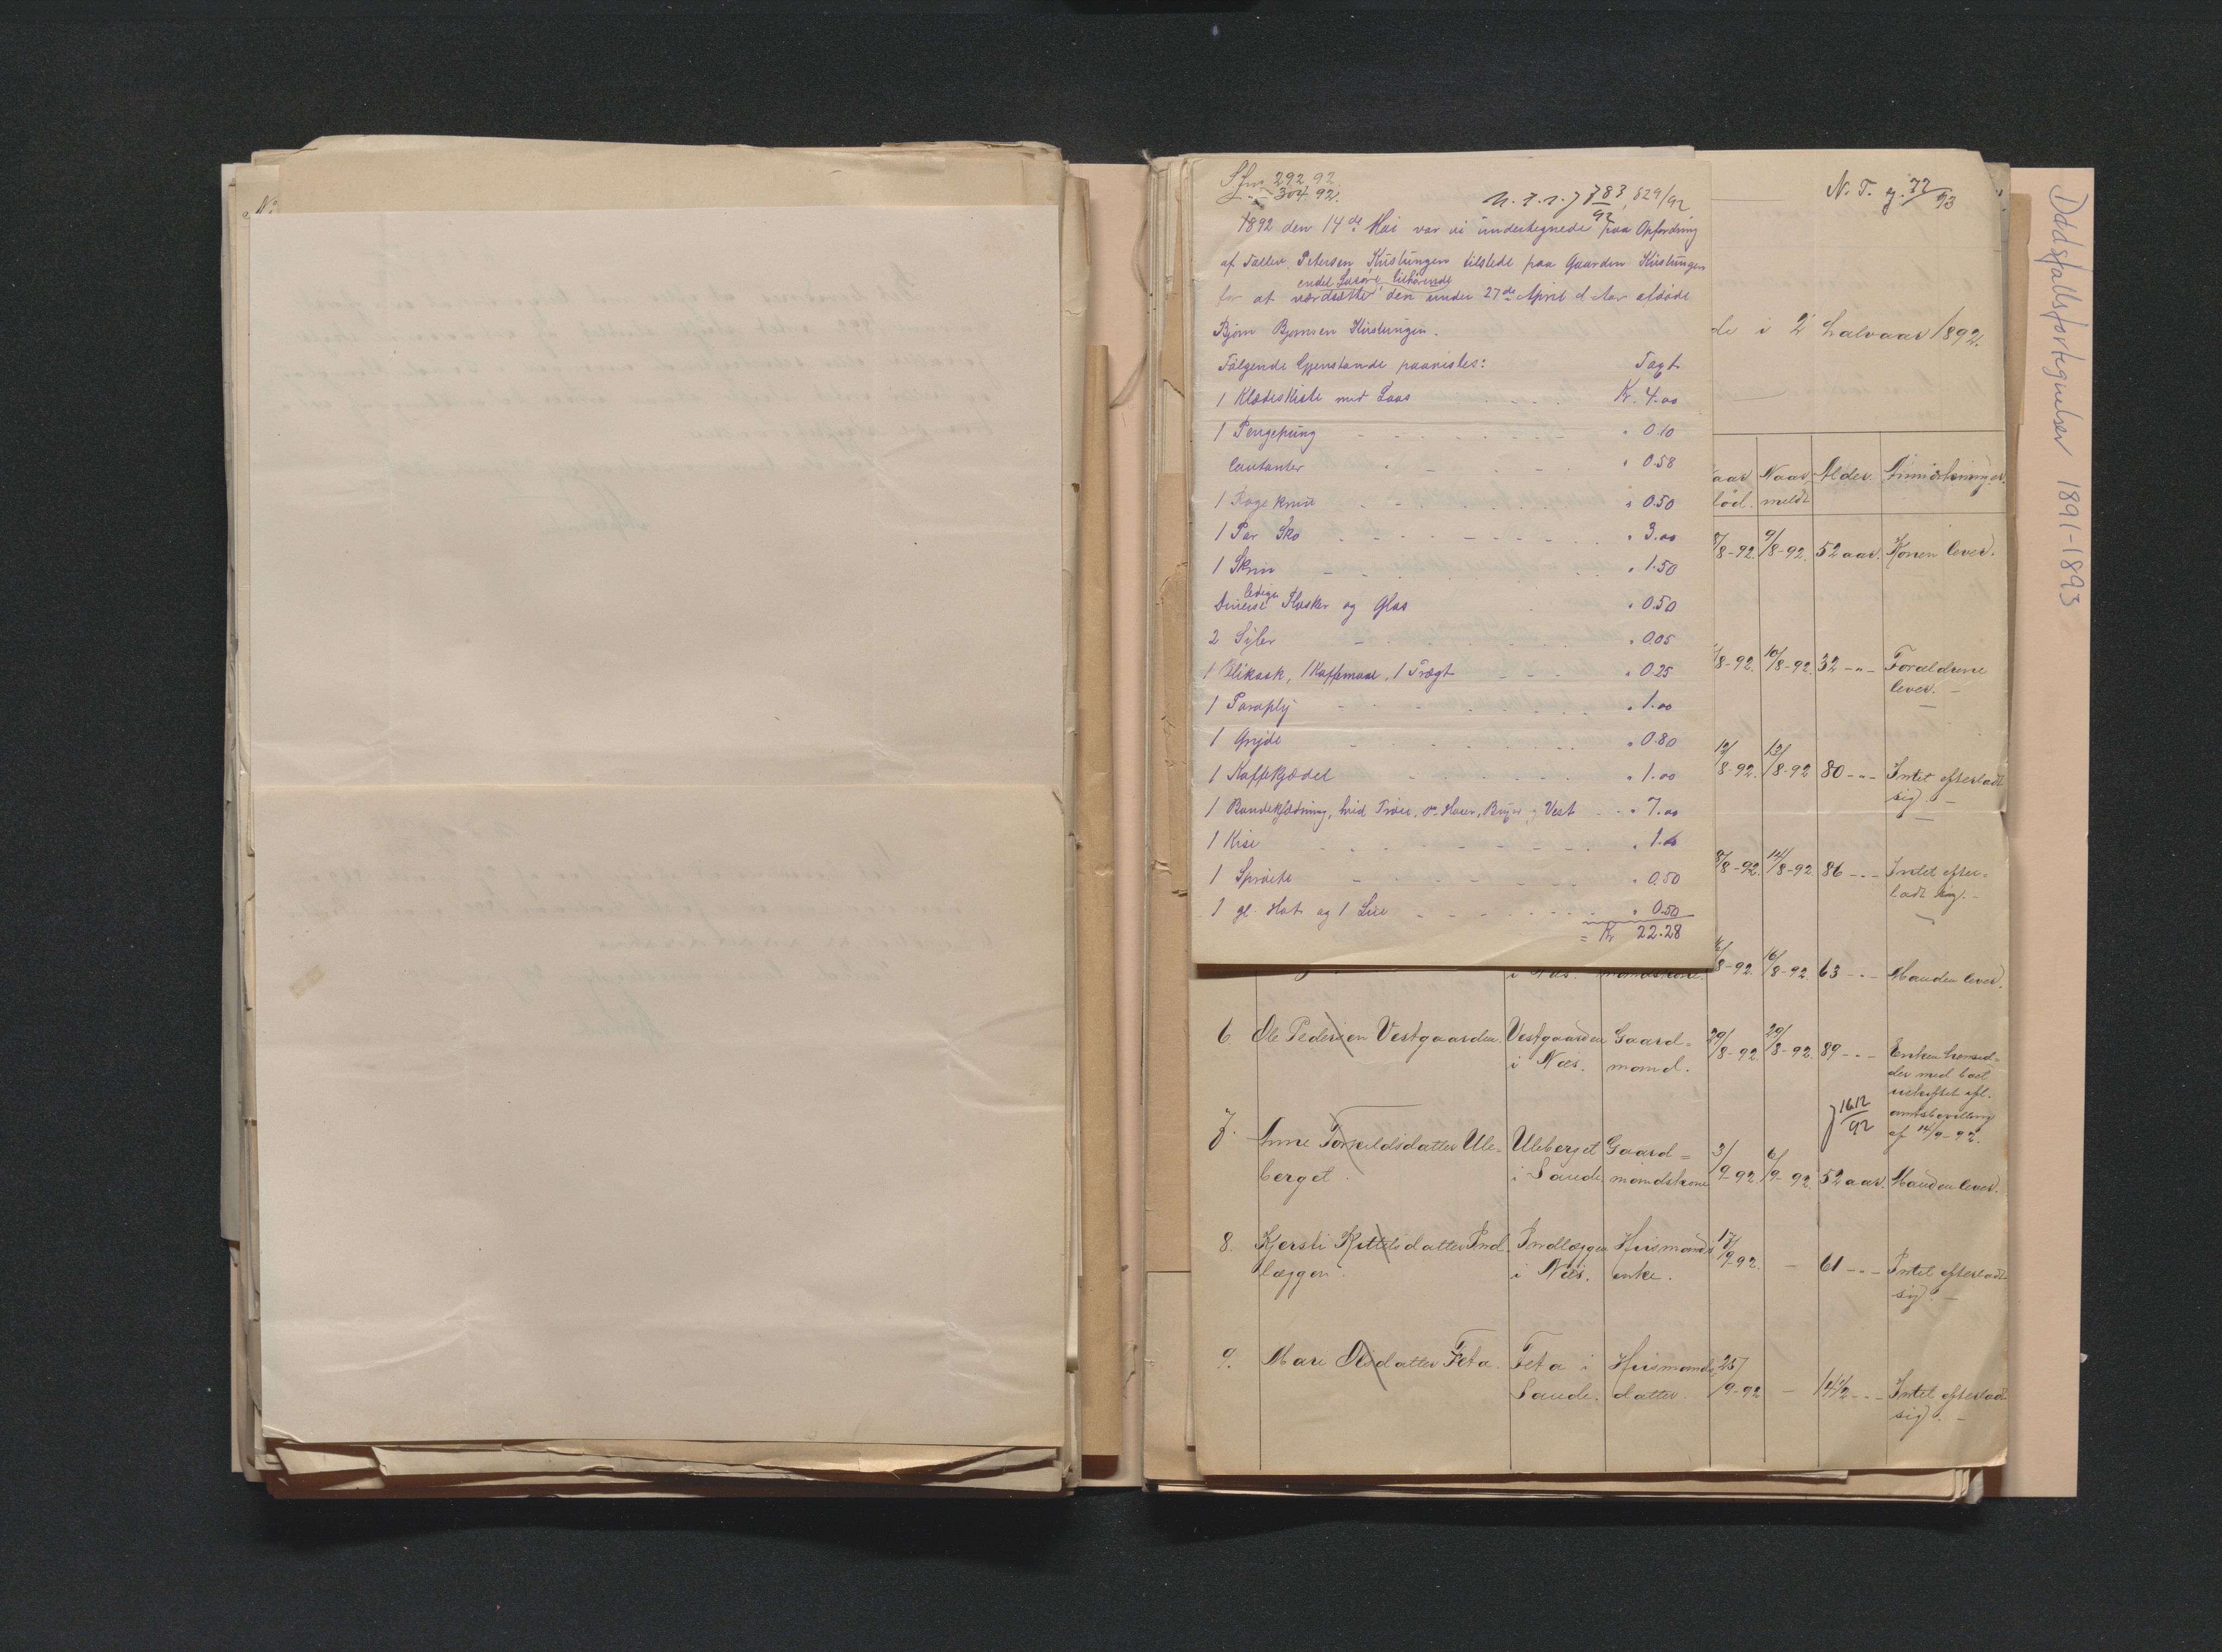 Dødsfallsfortegnelser 1891-1893
Sfm 292 92
304 92.
N. T. r. J 783/92, 829/92
1892 den 14de Mai var vi undertegnede paa Opfordring
af Tallev Petersen Kirstungen tilstede paa Gaarden Kirstungen
endel Løsøre tilhørende
for at værdsætte den under 27de April d Aar afdøde
Bjørn Bjørnsen Kirstungen.
Følgende Gjenstande paavistes: Taxt
1 Klædeskiste med Laas Kr. 4.00
1 Pengepung " 0.10
Contanter " 0.58
1 Kniv " 0.50
1 Par Sko " 3.00
1 Skrin " 1.50
ledige
Diverse Flasker og Glas " 0.50
2 Syler " 0.05
1 Kaffemaal, 1 Trægt " 0.25
1 Paraply " 1.00
1 Gryde " 0.80
1 Kaffekjædel " 1.00
1 Bondeklædning, hvid Trøie, Hoser, Buxe og Vest " 7.00
1 " 1.00
1 " 0.50
1 gl. Hat og 1 Lue " 0.50
= Kr 22.28
N. T. J. 77/93
de i 2 halvaar 1892.
Naar Alder. Anmærkninger.
meldt
8/8-92. 9/8-92. 52 aar. Konen lever.
8-92. 10/8-92. 32 -"- Forældrene
lever. -
12/8-92. 13/8-92 80 -"- Intet efterladt
sig. -
8/8-92. 14/8-92 86 -"- Intet efter-
ladt sig. -
i Næs. mandskone.
8-92. 16/8-92. 63 -"- Manden lever.
6 Ole Pedersen Vestgaarden. Vestgaarden Gaard- 29/8-92. 29/8-92. 89 -"- Enken hensid-
i Næs. mand. der med boet
uskiftet efl.
J 1612/92 amtsbevilling
af 14/9-92.
7. Anne Torkildsdatter Ule- Uleberget Gaard- 3/9-92. 6/9-92. 52 aar. Manden lever.
berget. i Saude. mandskone
8. Kjersti Kittilsdatter Ind- Indlæggen Husmands 17/9-92. - 61 -"- Intet efterladt
læggen. i Næs. enke. sig. -
9. Mari Olsdatter Feta. Feta i Husmands 25/9-92 - 14 1/2 -"- Intet efterladt
Saude. datter. sig. -